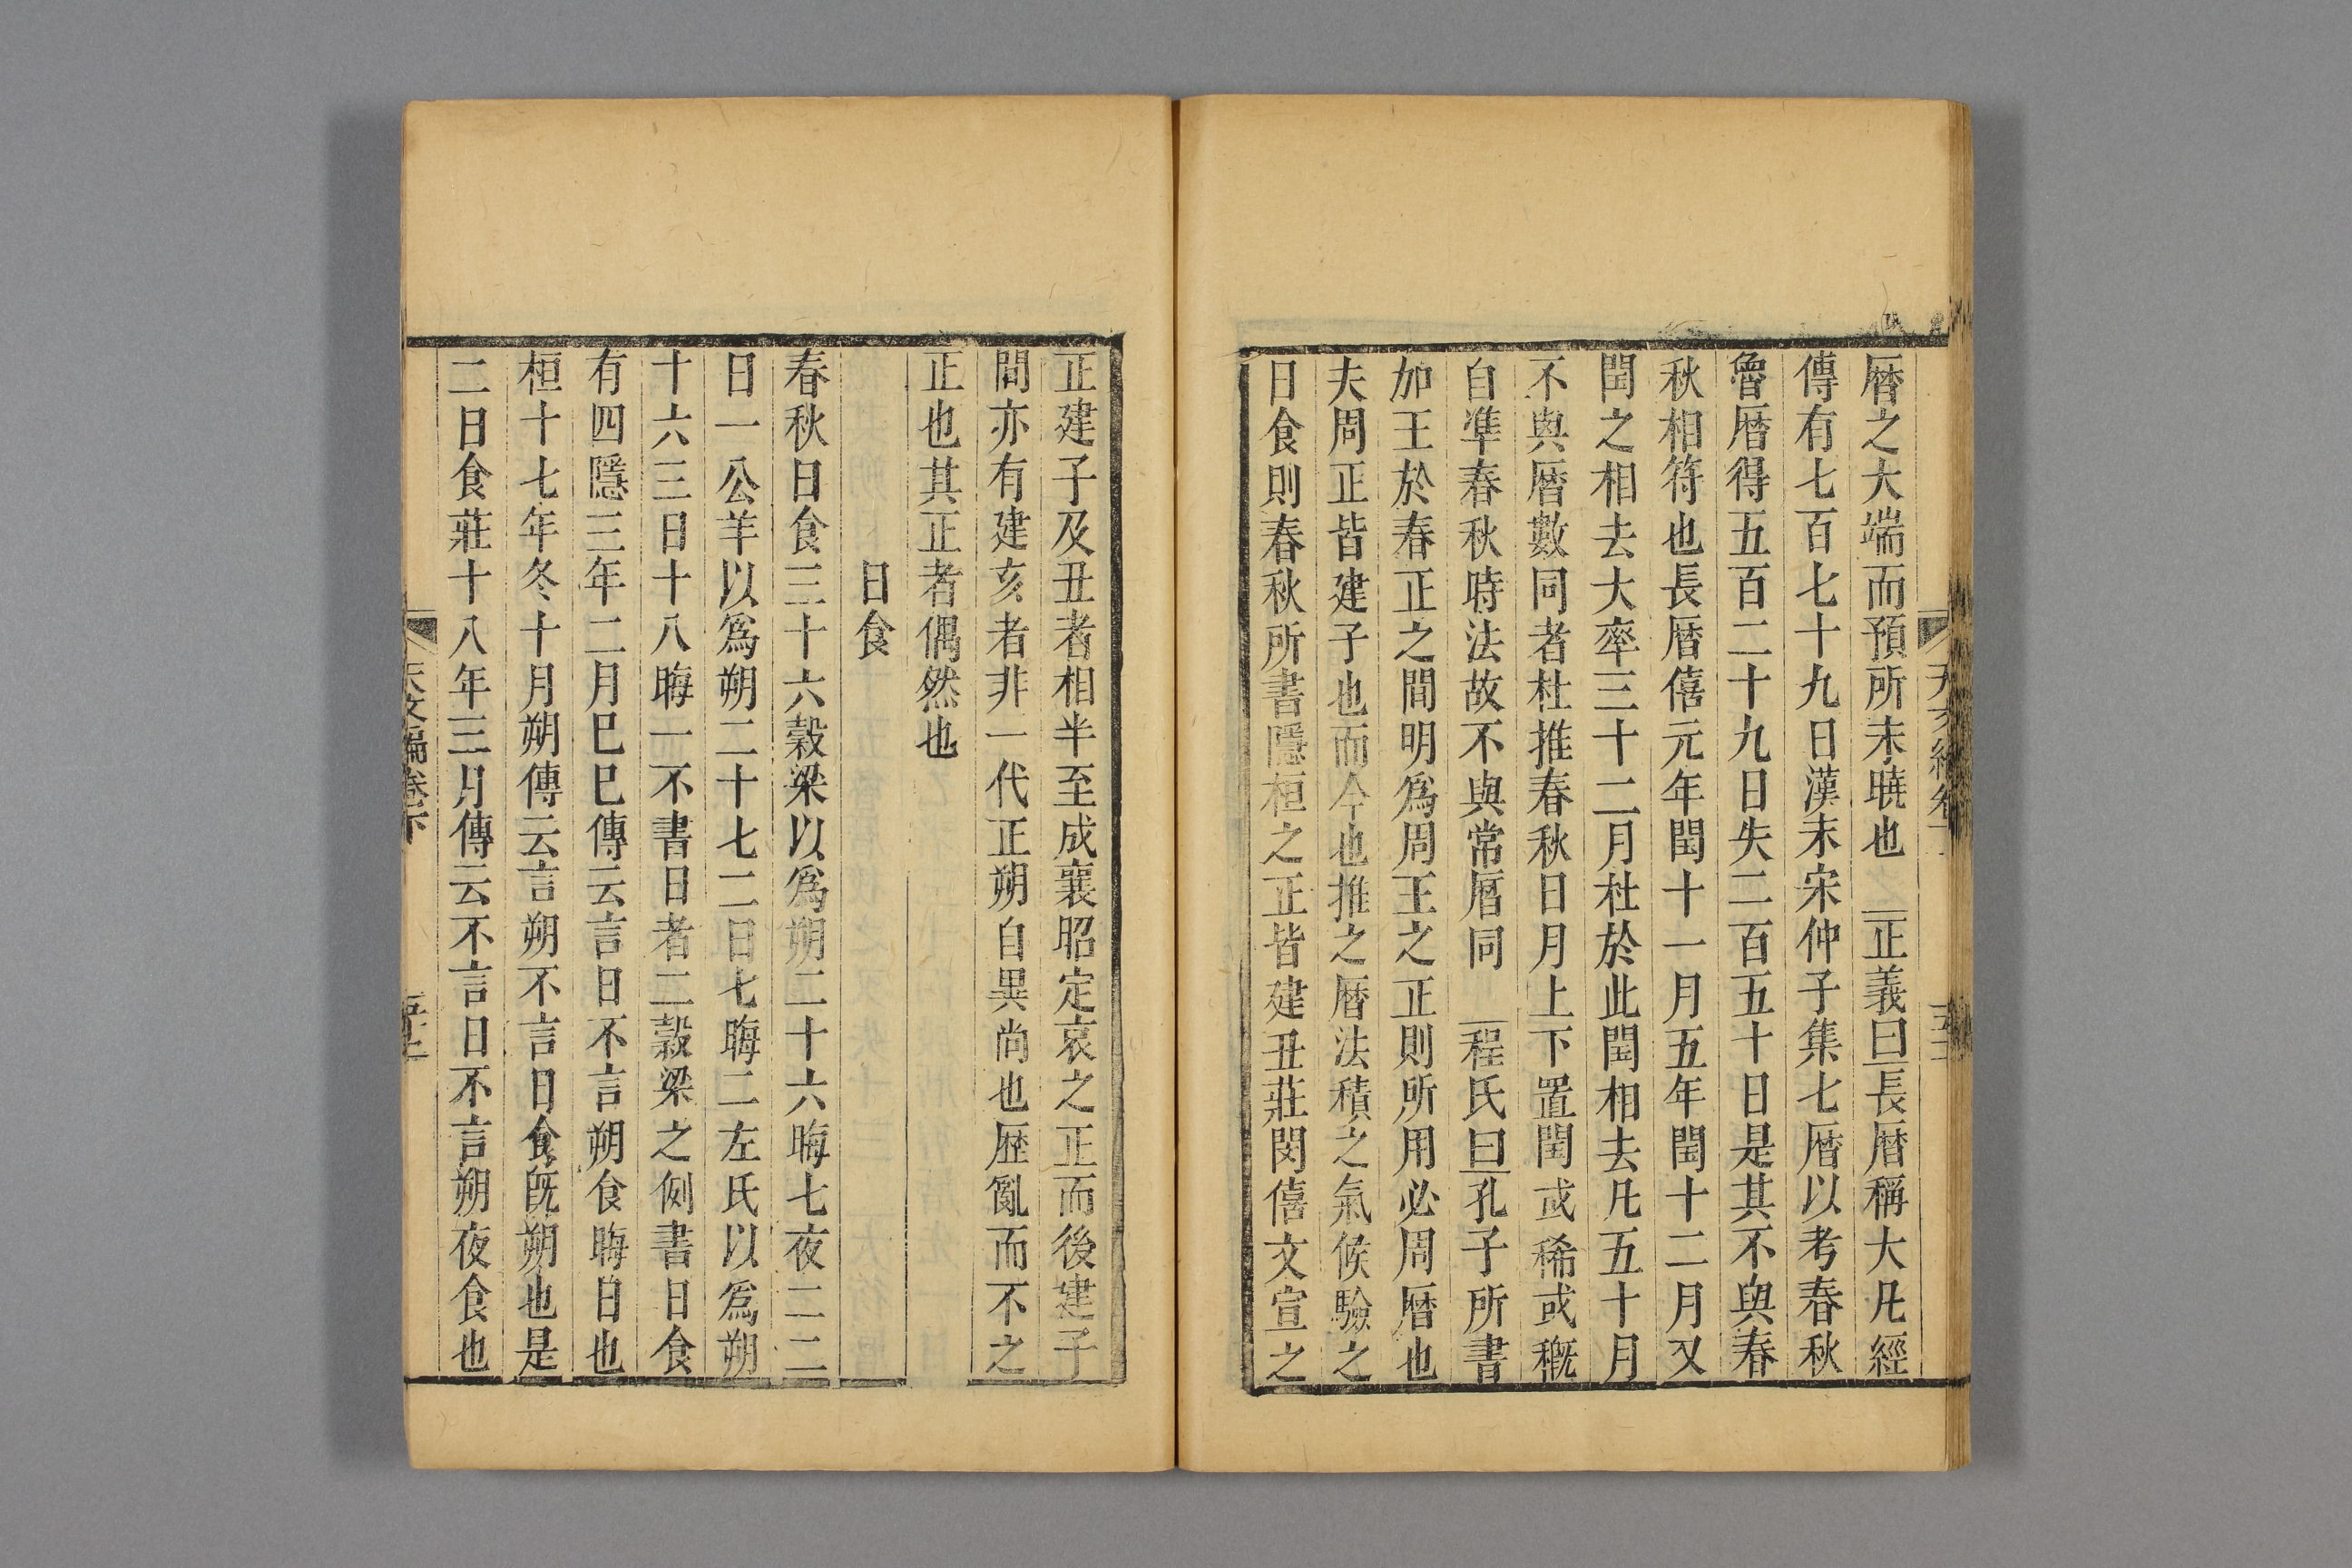 曆之大端而預所未曉也 正義曰長曆稱大凡經
傳有七百七十九日漢末宋仲子集七曆以考春秋
魯曆得五百二十九日失二百五十日是其不與春
秋相符也長曆僖元年閏十一月五年閏十二月又
閏之相去大率三十二月杜於此閏相去凡五十月
不與曆數同者杜推春秋日月上下置閏或稀或穊
自準春秋時法故不與常曆同 程氏曰孔子所書
加王於春正之間明爲周王之正則所用必周曆也
夫周正皆建子也而今也推之曆法積之氣候驗之
日食則春秋所書隱桓之正皆建丑莊閔僖文宣之
正建子及丑者相半至成襄昭定哀之正而後建子
間亦有建亥者非一代正朔自異尚也歷亂而不之
正也其正者偶然也
日食
春秋日食三十六穀梁以爲朔二十六晦七夜二二
日一公羊以爲朔二十七二日七晦二左氏以爲朔
十六三日十八晦一不書日者二穀梁之例書日食
有四隱三年二月巳巳傳云言日不言朔食晦日也
桓十七年冬十月朔傳云言朔不言日食既朔也是
二日食莊十八年三月傳云不言日不言朔夜食也
天文編卷下